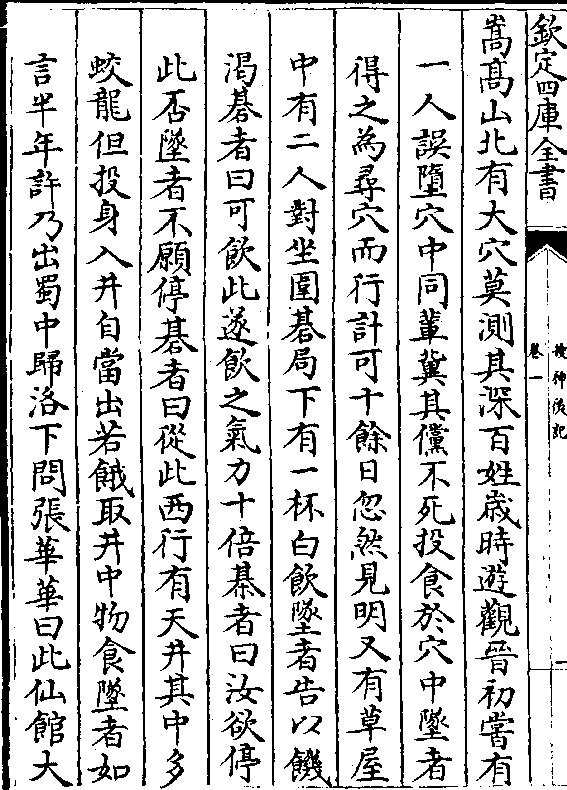 欽定四庫全書
搜神後記
卷一
嵩髙山北有大穴莫測其深百姓歳時遊觀晉初嘗有
一人誤墮穴中同輩冀其儻不死投食於穴中墜者
得之為尋穴而行計可十餘日忽然見明又有草屋
中有二人對坐圍碁局下有一杯白飲墜者告以饑
渴碁者曰可飲此遂飲之氣力十倍碁者曰汝欲停
此否墜者不願停碁者曰從此西行有天井其中多
蛟龍但投身入井自當出若餓取井中物食墜者如
言半年許乃出蜀中歸洛下問張華華曰此仙館大